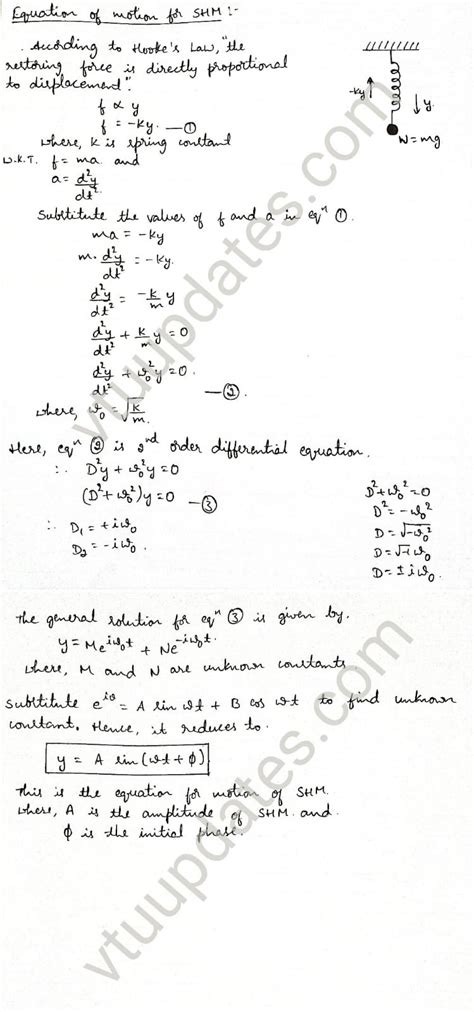 Equation of motion for SHM :-
According to Hooke's Law, "the
restoring force is directly proportional
to displacement".
f ∝ y
f = -ky. —①
where, k is spring constant
W.K.T. f = ma and
a = d²y/dt².
-ky
y.
W = mg
Substitute the values of f and a in eqⁿ ①.
ma = -ky
m. d²y/dt² = -ky.
d²y/dt² = -k/m y
d²y/dt² + k/m y = 0
d²y/dt² + ω₀²y = 0. —②.
where, ω₀ = √k/m.
Here, eqⁿ ② is 2nd order differential equation.
∴ D²y + ω₀²y = 0
(D² + ω₀²)y = 0 —③
∴ D₁ = +iω₀
D₂ = -iω₀.
D² + ω₀² = 0
D² = -ω₀²
D = √-ω₀²
D = √-1 ω₀
D = ± i ω₀.
The general solution for eqⁿ ③ is given by.
y = Me^iω₀t + Ne^-iω₀t.
where, M and N are unknown constants.
Substitute e^iθ = A sin ωt + B cos ωt to find unknown
constant. Hence, it reduces to.
y = A sin (ωt + φ)
This is the equation for motion of SHM.
where, A is the amplitude of SHM and.
φ is the initial phase.
vtuupdates.com
vtuupdates.com